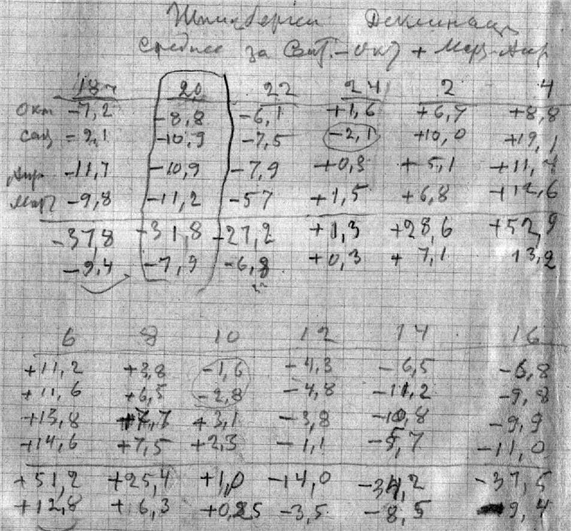 Шпицберген Деклинац
Среднее за Сент.-Окт + Март-Апр
18 20 22 24 2 4
окт -7,2 -8,8 -6,1 +1,6 +6,7 +8,8
-9,1 -10,9 -7,5 -2,1 +10,0 +19,1
Апр -11,7 -10,9 -7,9 +0,3 +5,1 +11,7
Март -9,8 -11,2 -57 +1,5 +6,8 +12,6
-37,8 -31,8 -27,2 +1,3 +28,6 +52,9
-9,4 -7,9 -6,8 +0,3 +7,1 13,2
6 8 10 12 14 16
+11,2 +3,8 -1,6 -4,3 -6,5 -6,8
+11,6 +6,5 -2,8 -4,8 -11,2 -9,8
+13,8 +7,7 +3,1 -3,8 -10,8 -9,9
+14,6 +7,5 +2,3 -1,1 -5,7 -11,0
+51,2 +25,4 +1,0 -14,0 -34,2 -37,5
+12,8 +6,3 +0,25 -3,5 -8,5 9,4